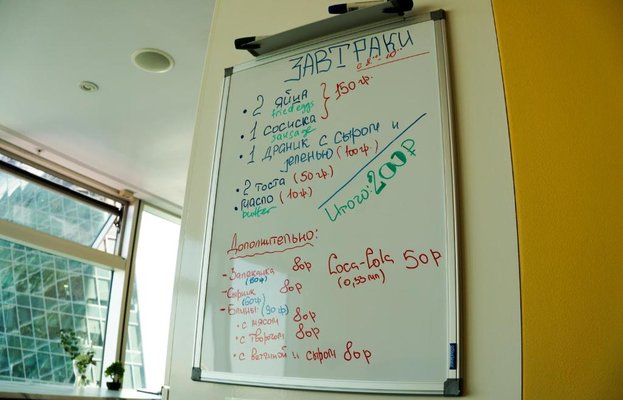 ЗАВТРАКИ
• 2 яйца
fried eggs
• 1 сосиска
sausage
150 гр.
• 1 драник с сыром и
зеленью (100 гр.)
• 2 тоста (50 гр)
• масло (10 гр)
butter
Итого: 200 р
Дополнительно:
- Запеканка 80 р
(80 гр)
- Сырник 80 р
(60 гр)
- Блины: (90 гр)
• с мясом 80 р
• с творогом 80 р
• с ветчиной и сыром 80 р
Coca-Cola 50 р
(0,33 мл)